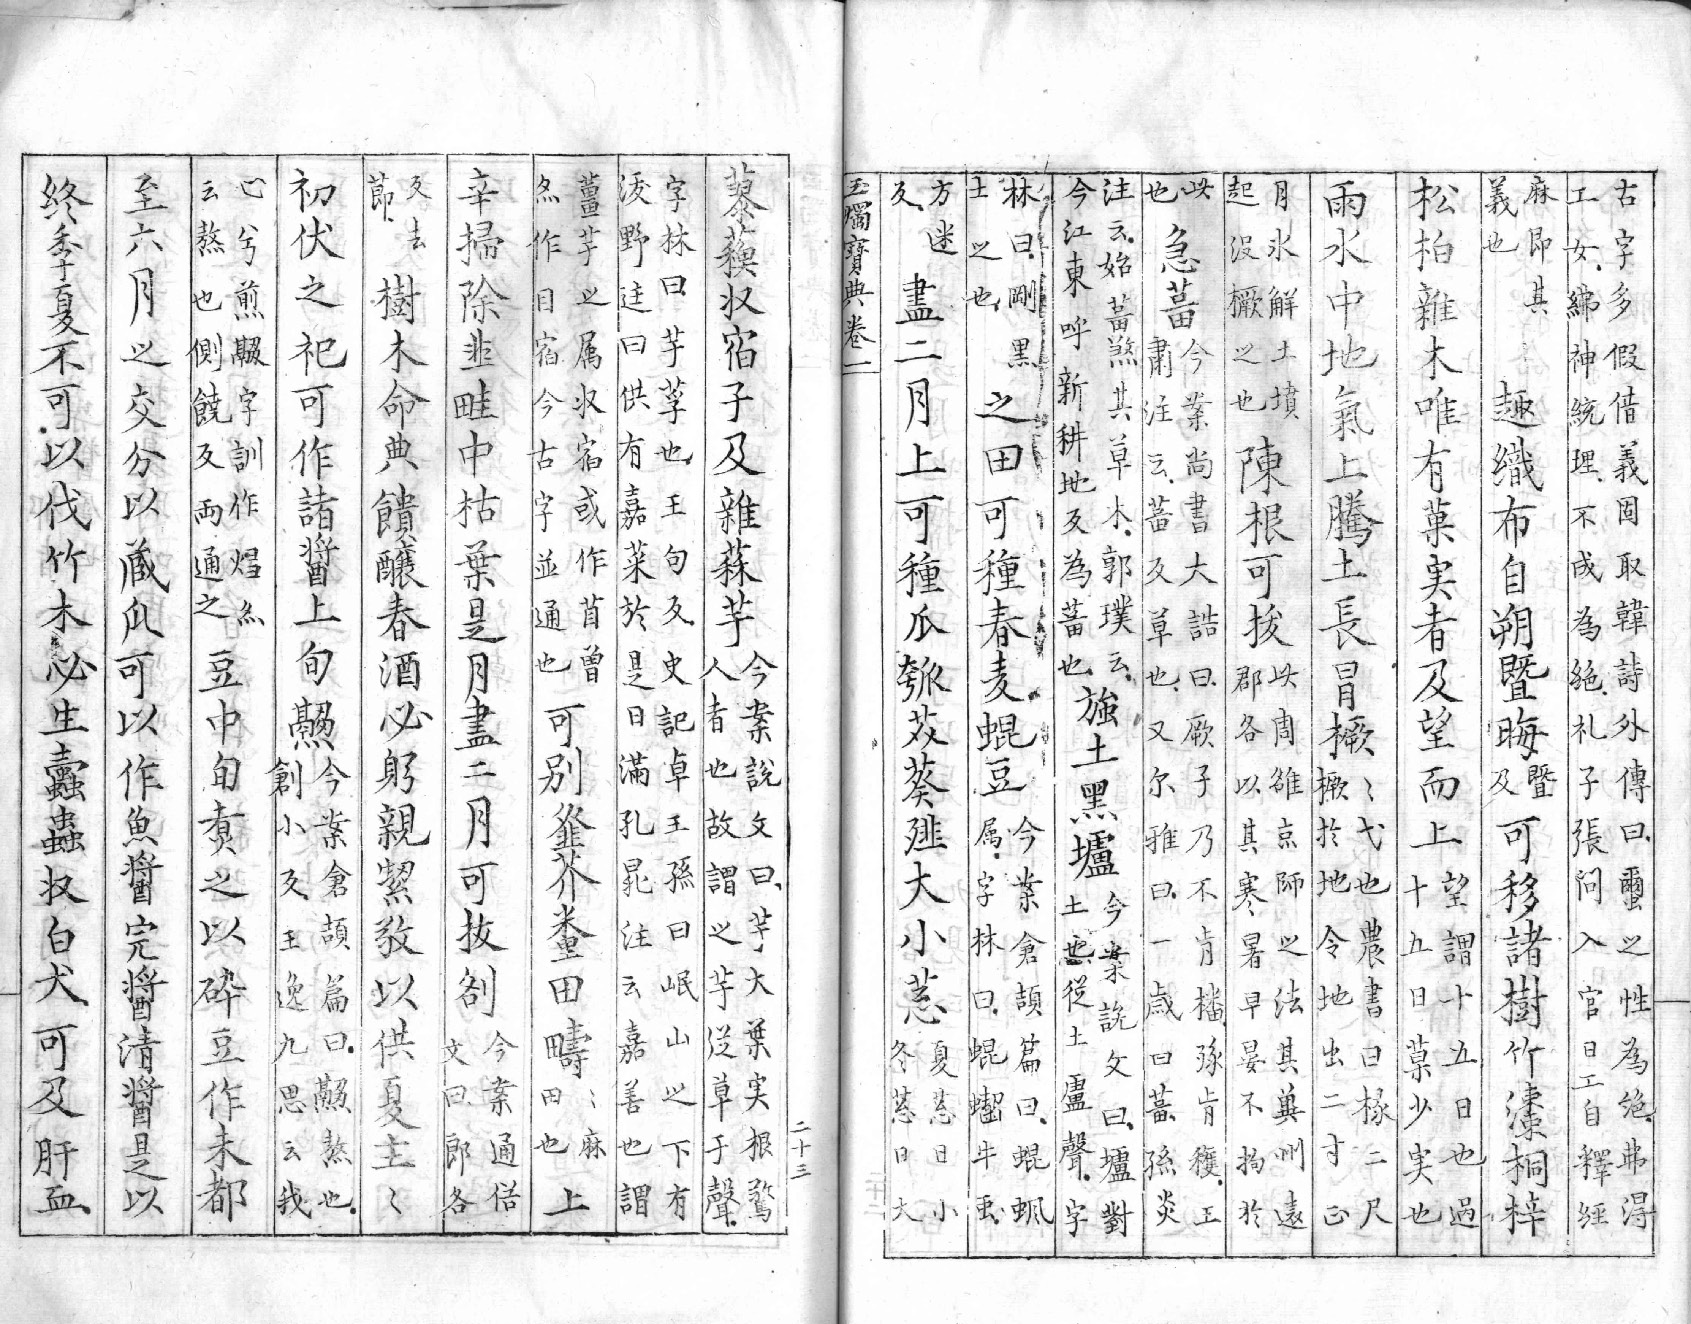 古字多假借義固取韓詩外傳曰璽之性為絶弗淂
工女繰神統理不成為絶礼子張問入官曰工自釋經
麻即其
義也
趣織布自朔暨晦
暨
及
可移諸樹竹漆桐梓
松柏雜木唯有菓実者及望而上
望謂十五日也過
十五日菓少実也
雨水中地氣上騰土長冒橛
〻弋也農書曰椽二尺
橛於地令地出二寸正
月氷解土墳
起沒橛之也
陳根可拔
此周雒京師之法其冀州遠
郡各以其寒暑早晏不拘於
此
也
急菑
今案尚書大誥曰厥子乃不肯播矧肯穫王
肅注云菑反草也又尔雅曰一歳曰菑孫炎
注云始菑煞其草木郭璞云
今江東呼新耕地反為菑也
強土黑壚
今案説文曰壚對
土也從土盧聲字
林曰剛黑
土之也
之田可種春麦蜫豆
今案倉頡篇曰蜫
属字林曰蜫牛虱
方迷
反
盡二月上可種瓜瓠葵薤大小葱
夏葱曰小
冬葱曰大
玉燭寶典卷一
二十三
蓼藇収宿子及雜蒜芋
今案説文曰芋大葉実根驚
人者也故謂之芋従草于聲
字林曰芋莩也王句反史記卓王孫曰岷山之下有
沃野迋曰供有嘉菜於是日滿孔晁注云嘉善也謂
薑芋之属収宿或作苜曽
亦作目宿今古字並通也
可別韰芥糞田疇
〻麻
田也
上
辛掃除韭畦中枯葉是月盡二月可抜剖
今案通俗
文曰郎各
反去
節
樹木命典饋釀春酒必躬親絜敬以供夏主〻
初伏之祀可作諸醬上旬
今案倉頡篇曰熬也
創小反王逸九思云我
心兮煎字訓作亦
云熬也側饒反両通之
豆中旬煑之以碎豆作末都
至六月之交分以蔵瓜可以作魚醬完醬清醬是以
終季夏不可以伐竹木必生蠹蟲収白犬可及肝血